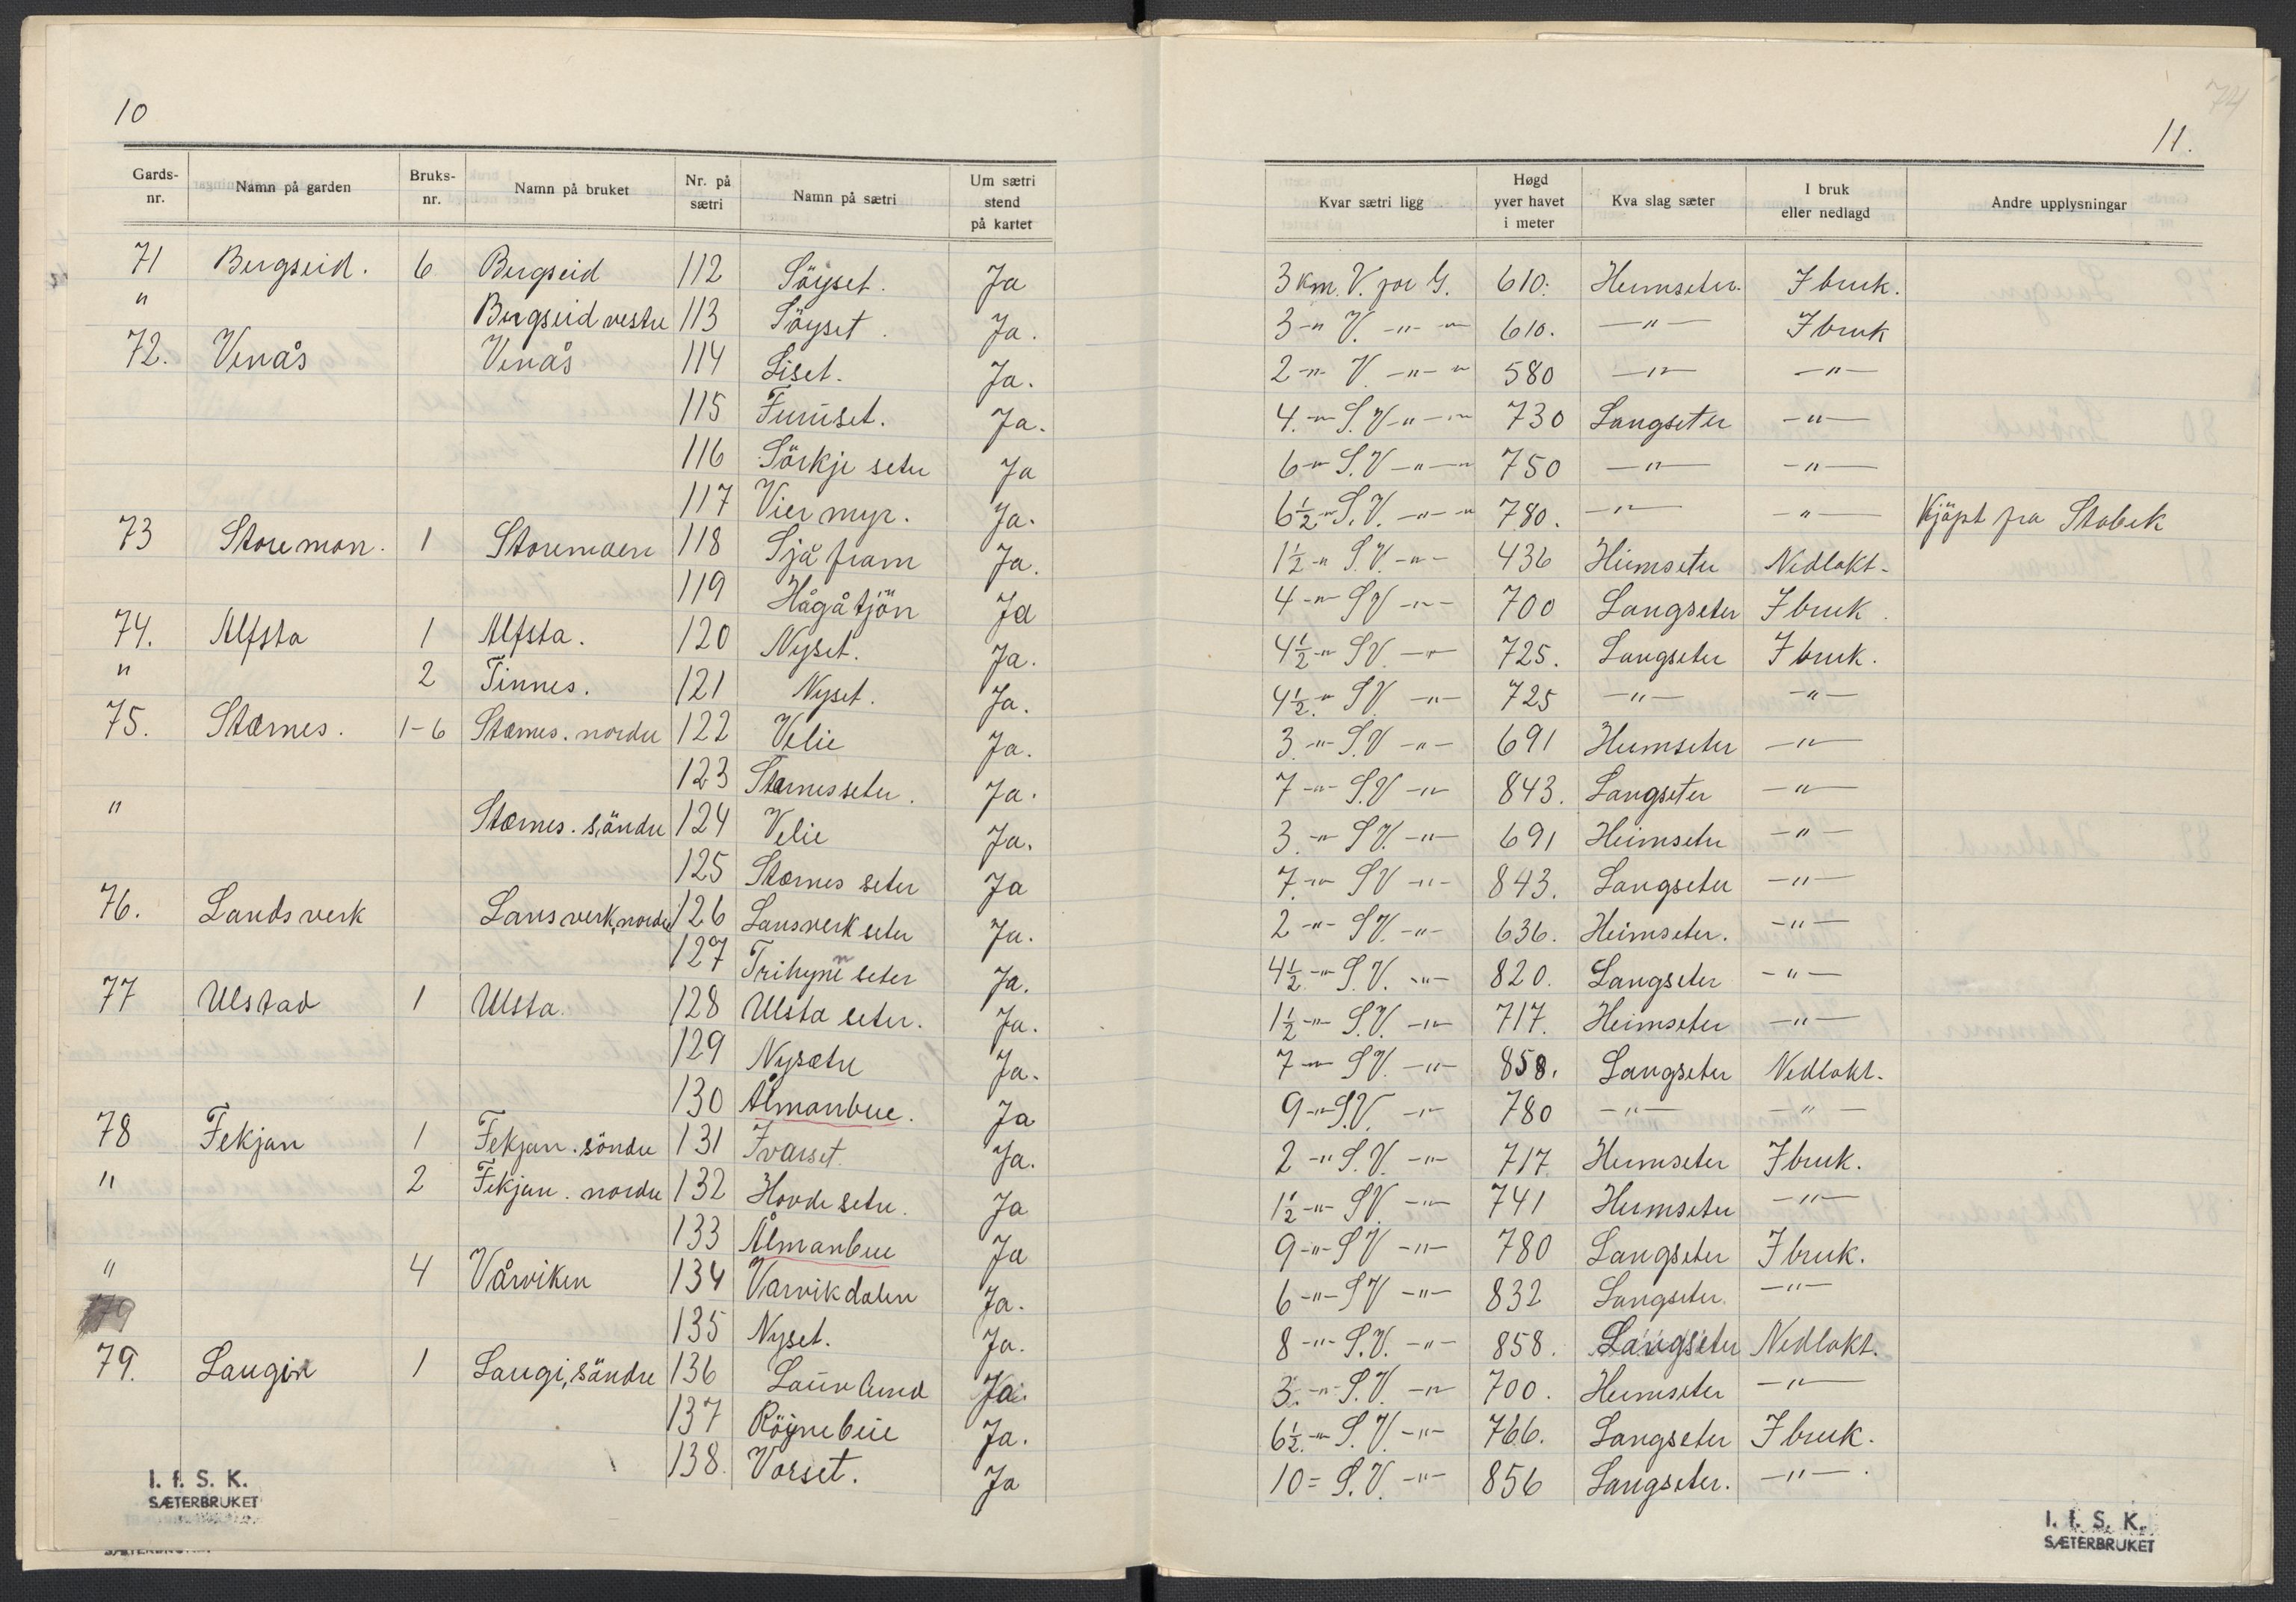 10
Gards-nr. Namn på garden Bruks-nr. Namn på bruket Nr. på sætri Namn på sætri Um sætri stend på kartet
71 Bergseid. 6 Bergseid 112 Söyset. Ja
" Bergseid vestre 113 Söyset. Ja.
72. Venås Venås 114 Liset. Ja.
115 Furuset. Ja.
116 Sörkje seter Ja
117 Vier myr. Ja.
73 Storemon. 1 Storemoen 118 Sjå fram Ja.
119 Hågåtjön Ja
74. Alfsta 1 Alfsta. 120 Nyset. Ja.
" 2 Tinnes. 121 Nyset. Ja.
75. Stærnes. 1-6 Stærnes. nordre 122 Velie Ja.
123 Stærnesseter. Ja.
" Stærnes. söndre 124 Velie Ja.
125 Stærnes seter Ja
76. Landsverk Lansverk, nordre 126 Lansverk seter Ja.
127 Trihynn seter Ja.
77 Ulstad 1 Ulsta. 128 Ulsta seter. Ja.
129 Nysetre Ja.
130 Ålmanbue. Ja
78 Fekjan 1 Fekjan. söndre 131 Ivarset. Ja.
" 2 Fekjan. nordre 132 Hovde setre. Ja
133 Ålmanbue Ja
" 4 Vårviken 134 Varvikdalen Ja.
79
135 Nyset. Ja.
79. Laugin 1 Laugi, söndre 136 Laurlund Ja.
137 Röynebue Ja.
138. Vorset. Ja
I. f. S. K.
SÆTERBRUKET
74
11.
Kvar sætri ligg Høgd yver havet i meter Kva slag sæter I bruk eller nedlagd Andre upplysningar
3 km. V. for G. 610. Heimseter. I bruk.
3 -"- V. -"- " 610. -"- I bruk
2 -"- V. -"- " 580 -"- -"-
4. -"- S.V. -"- " 730 Langseter -"-
6 -"- S.V. -"- " 750 -"- -"-
6½ -"- S.V. -"- " 780. -"- -"- Kjöpt fra Stabek
1½ -"- S.V. -"- 436 Heimseter Nedlakt.
4 -"- SV -"- 700 Langseter I bruk.
4½ -"- SV. -"- 725. Langseter I bruk.
4½ -"- SV. -"- 725 -"- -"-
3. -"- S.V -"- 691 Heimseter -"-
7 -"- S.V -"- 843. Langseter -"-
3. -"- SV. -"- 691 Heimseter -"-
7. -"- SV -"- 843. Langseter -"-
2 -"- SV. -"- 636. Heimseter. -"-
4½ -"- S.V. -"- 820. Langseter -"-
1½ -"- S.V. -"- 717. Heimseter -"-
7 -"- SV. -"- 858. Langseter Nedlakt.
9 -"- S.V. -"- 780 -"- -"-
2 -"- S.V. -"- 717 Heimseter I bruk.
1½ -"- SV. -"- 741 Heimseter -"-
9 -"- SV -"- 780 Langseter I bruk.
6 -"- SV -"- 832 Langseter. -"-
8 -"- S.V. -"- 858. Langseter Nedlakt.
3. -"- S.V. -"- 700. Heimseter -"-
6½ -"- S.V. -"- 766. Langseter I bruk.
10 = S.V. -"- 856 Langseter. -"-.
I. f. S. K.
SÆTERBRUKET